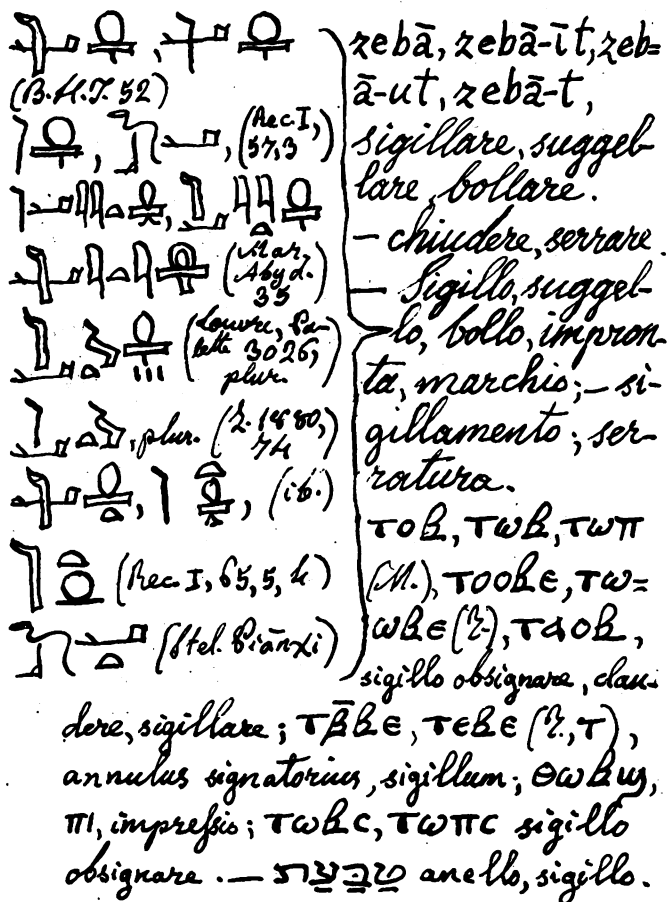 (B.H.T. 52)
, (Rec. I,
57, 3)
(Mar.
Abyd.
35)
(Louvre, Pa-
lette 3026,
plur.
, plur. (Z. 1880,
74)
, (ib.)
(Rec. I, 65, 5, 4)
(Stel. Piānχi)
zebā, zebā-īt, zeb=
ā-ut, zebā-t,
sigillare, suggel-
lare, bollare.
— chiudere, serrare.
— Sigillo, suggel-
lo, bollo, impron-
ta, marchio; — si-
gillamento; ser-
ratura.
ⲧⲟⲃ, ⲧⲱⲃ, ⲧⲱⲡ
(M.), ⲧⲟⲟⲃⲉ, ⲧⲱ=
ⲱⲃⲉ (Z.), ⲧⲁⲟⲃ,
sigillo obsignare, clau-
dere, sigillare; ⲧⲃ̄ⲃⲉ, ⲧⲉⲃⲉ (Z., T),
annulus signatorius, sigillum; ⲑⲱⲃⲱ,
ⲡⲓ, impressio; ⲧⲱⲃⲥ, ⲧⲱⲡⲥ sigillo
obsignare. — טַבַּעַת anello, sigillo.